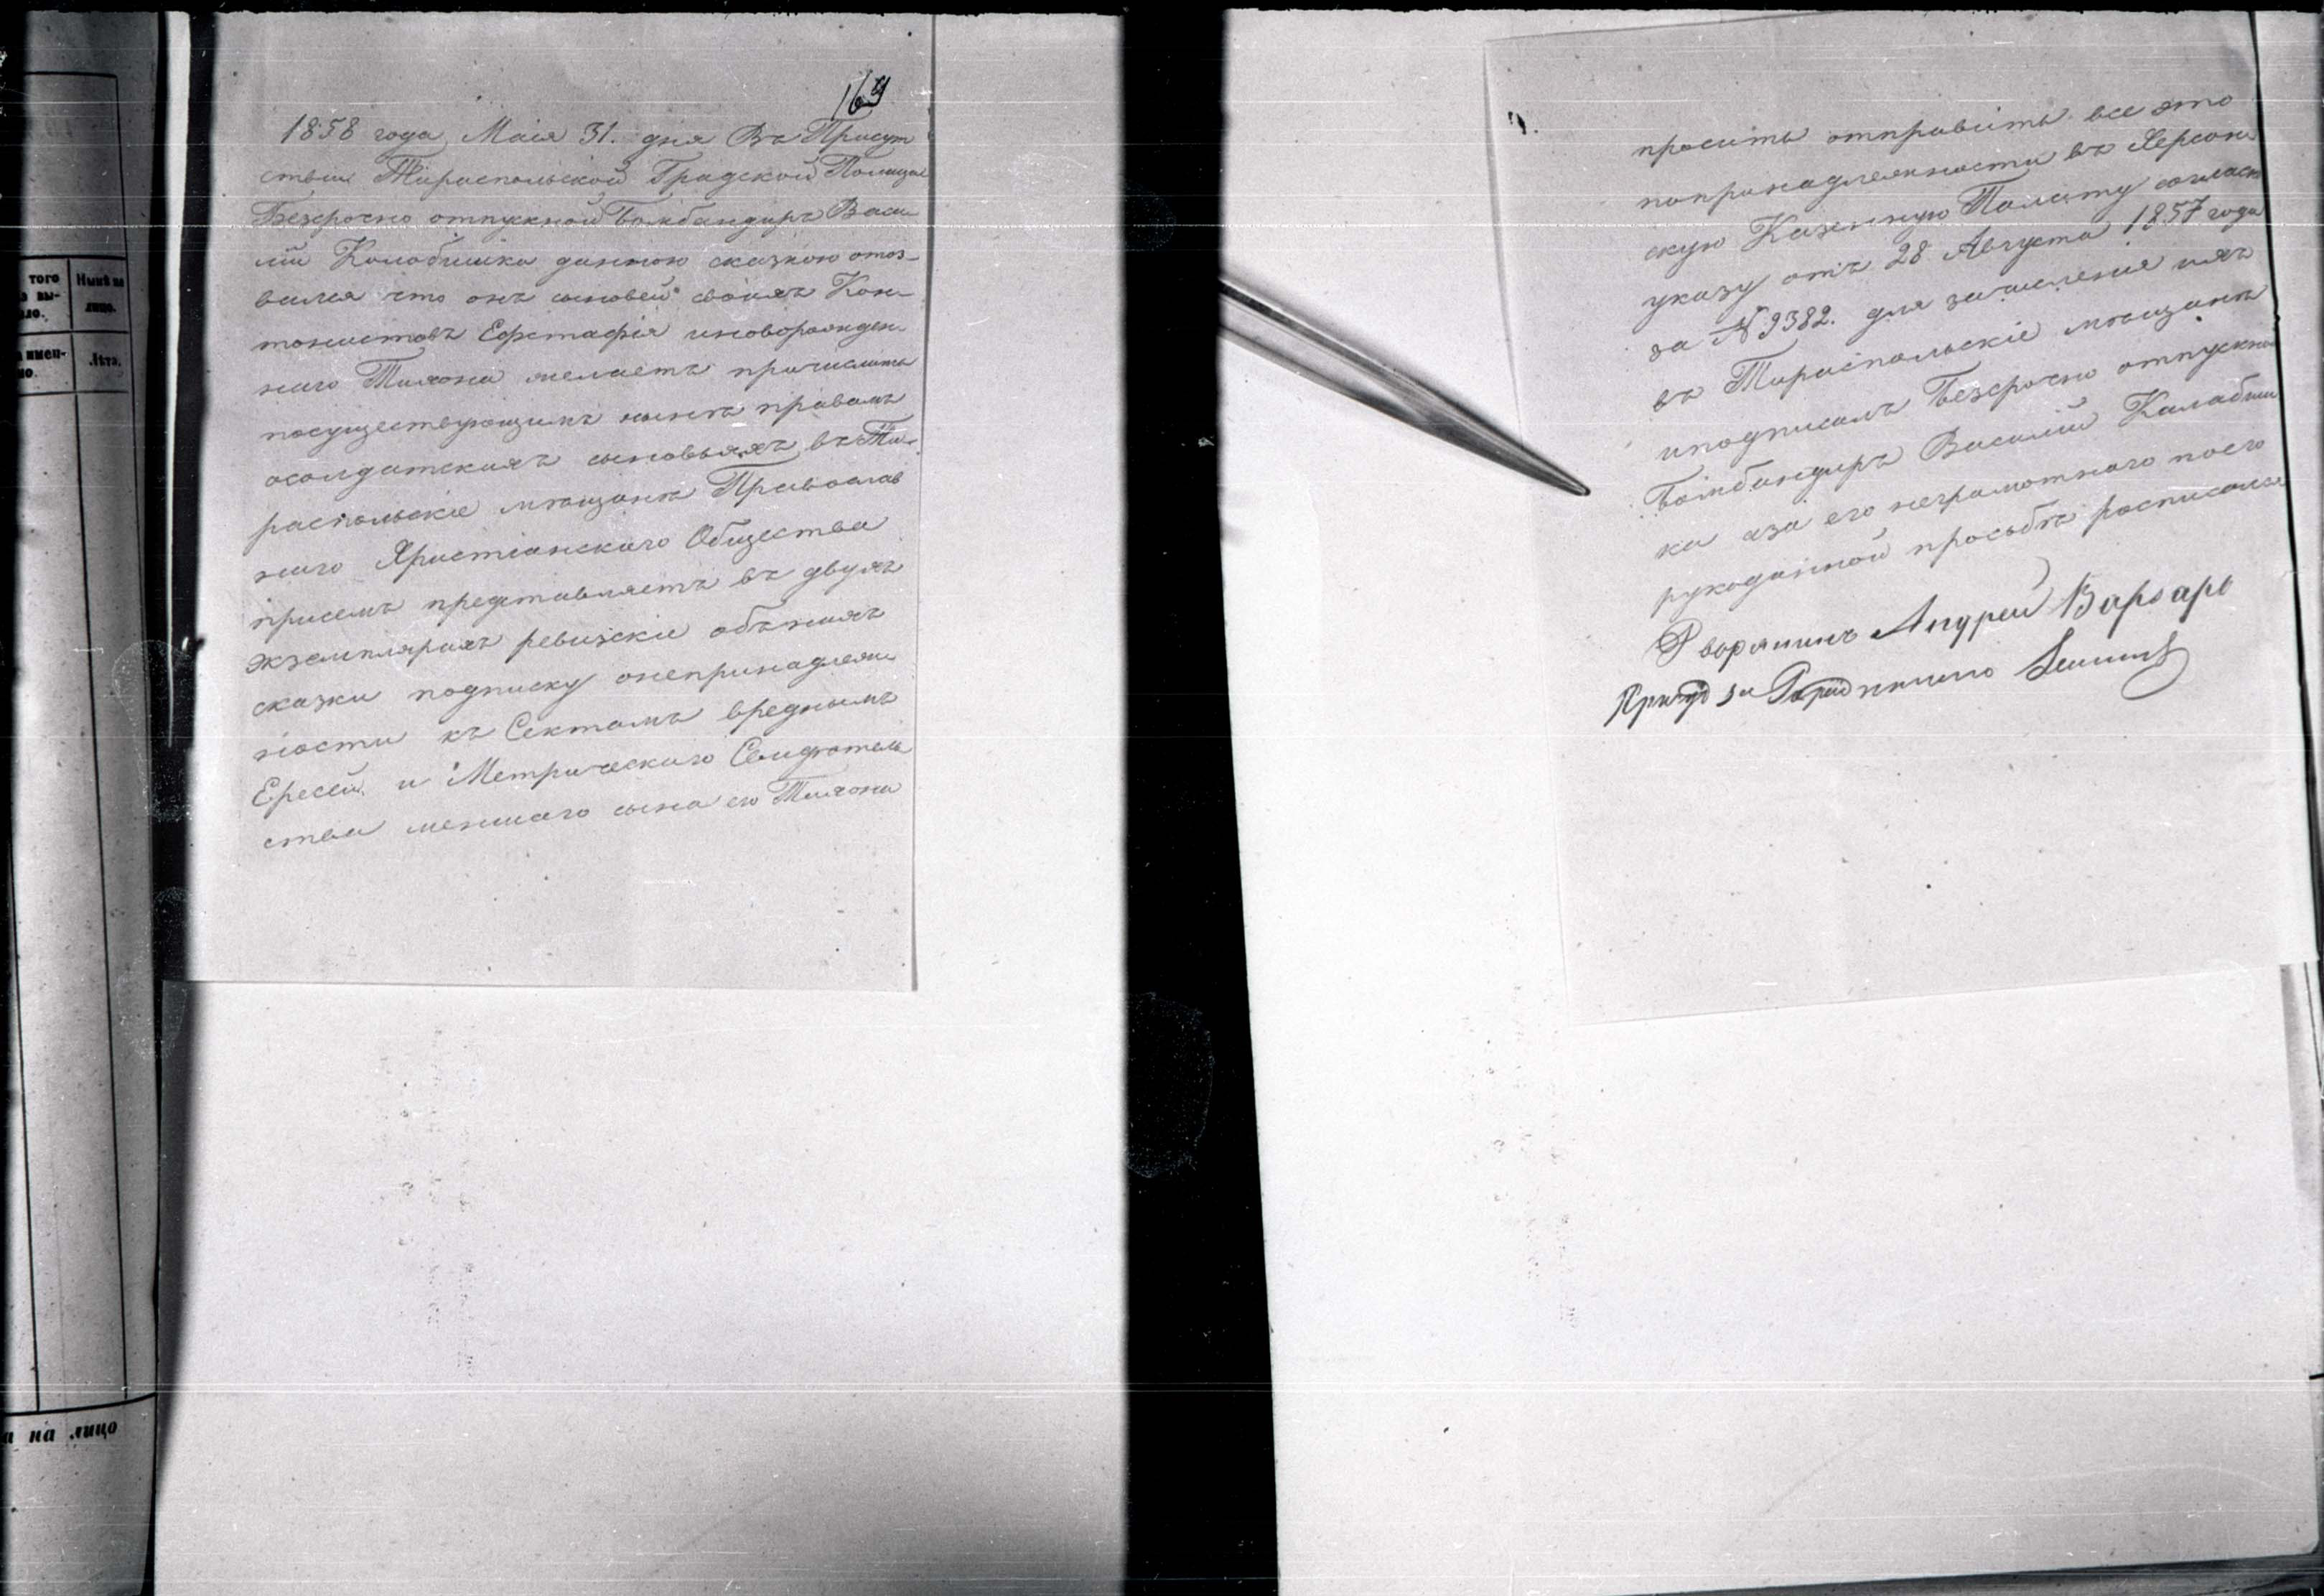 того
Нынѣ на
вы-
лицо.
ло.
имен-
Лѣта.
но.
а на лицо
169
1858 года Маія 31. дня Въ Присут
ствіи Тираспольской Градской Полиціи
Безсрочно отпускной Бомбандиръ Васи
лій Колобчишка данною сказкою отоз-
вался что онъ сыновей своихъ Кан-
тонистовъ Ефстафія иноворожден
наго Тихона желаетъ причислить
посуществующимъ нынѣ правамъ
осолдатскихъ сыновьяхъ въ Ти-
распольскіе мѣщани Православ
наго Христіанскаго Общества
присемъ представляетъ въ двухъ
экземплярахъ ревизскіе объ нихъ
сказки подписку онепринадлеж
ности къ Сектамъ вреднымъ
Ересей и Метрическаго Свидѣтель
ства меншаго сына его Тихона
просить отправить все это
попринадлежности въ Херсон
скую Казенную Палату согласн
указу отъ 28 Августа 1857 года
за N 9382. для зачисленія ихъ
въ Тираспольскіе мѣщани
иподписалъ Безсрочно отпускно
Бомбандиръ Василій
ка аза его неграмотнаго поего
рукоданной просьбѣ росписался
Дворянинъ Андрей Варзарь